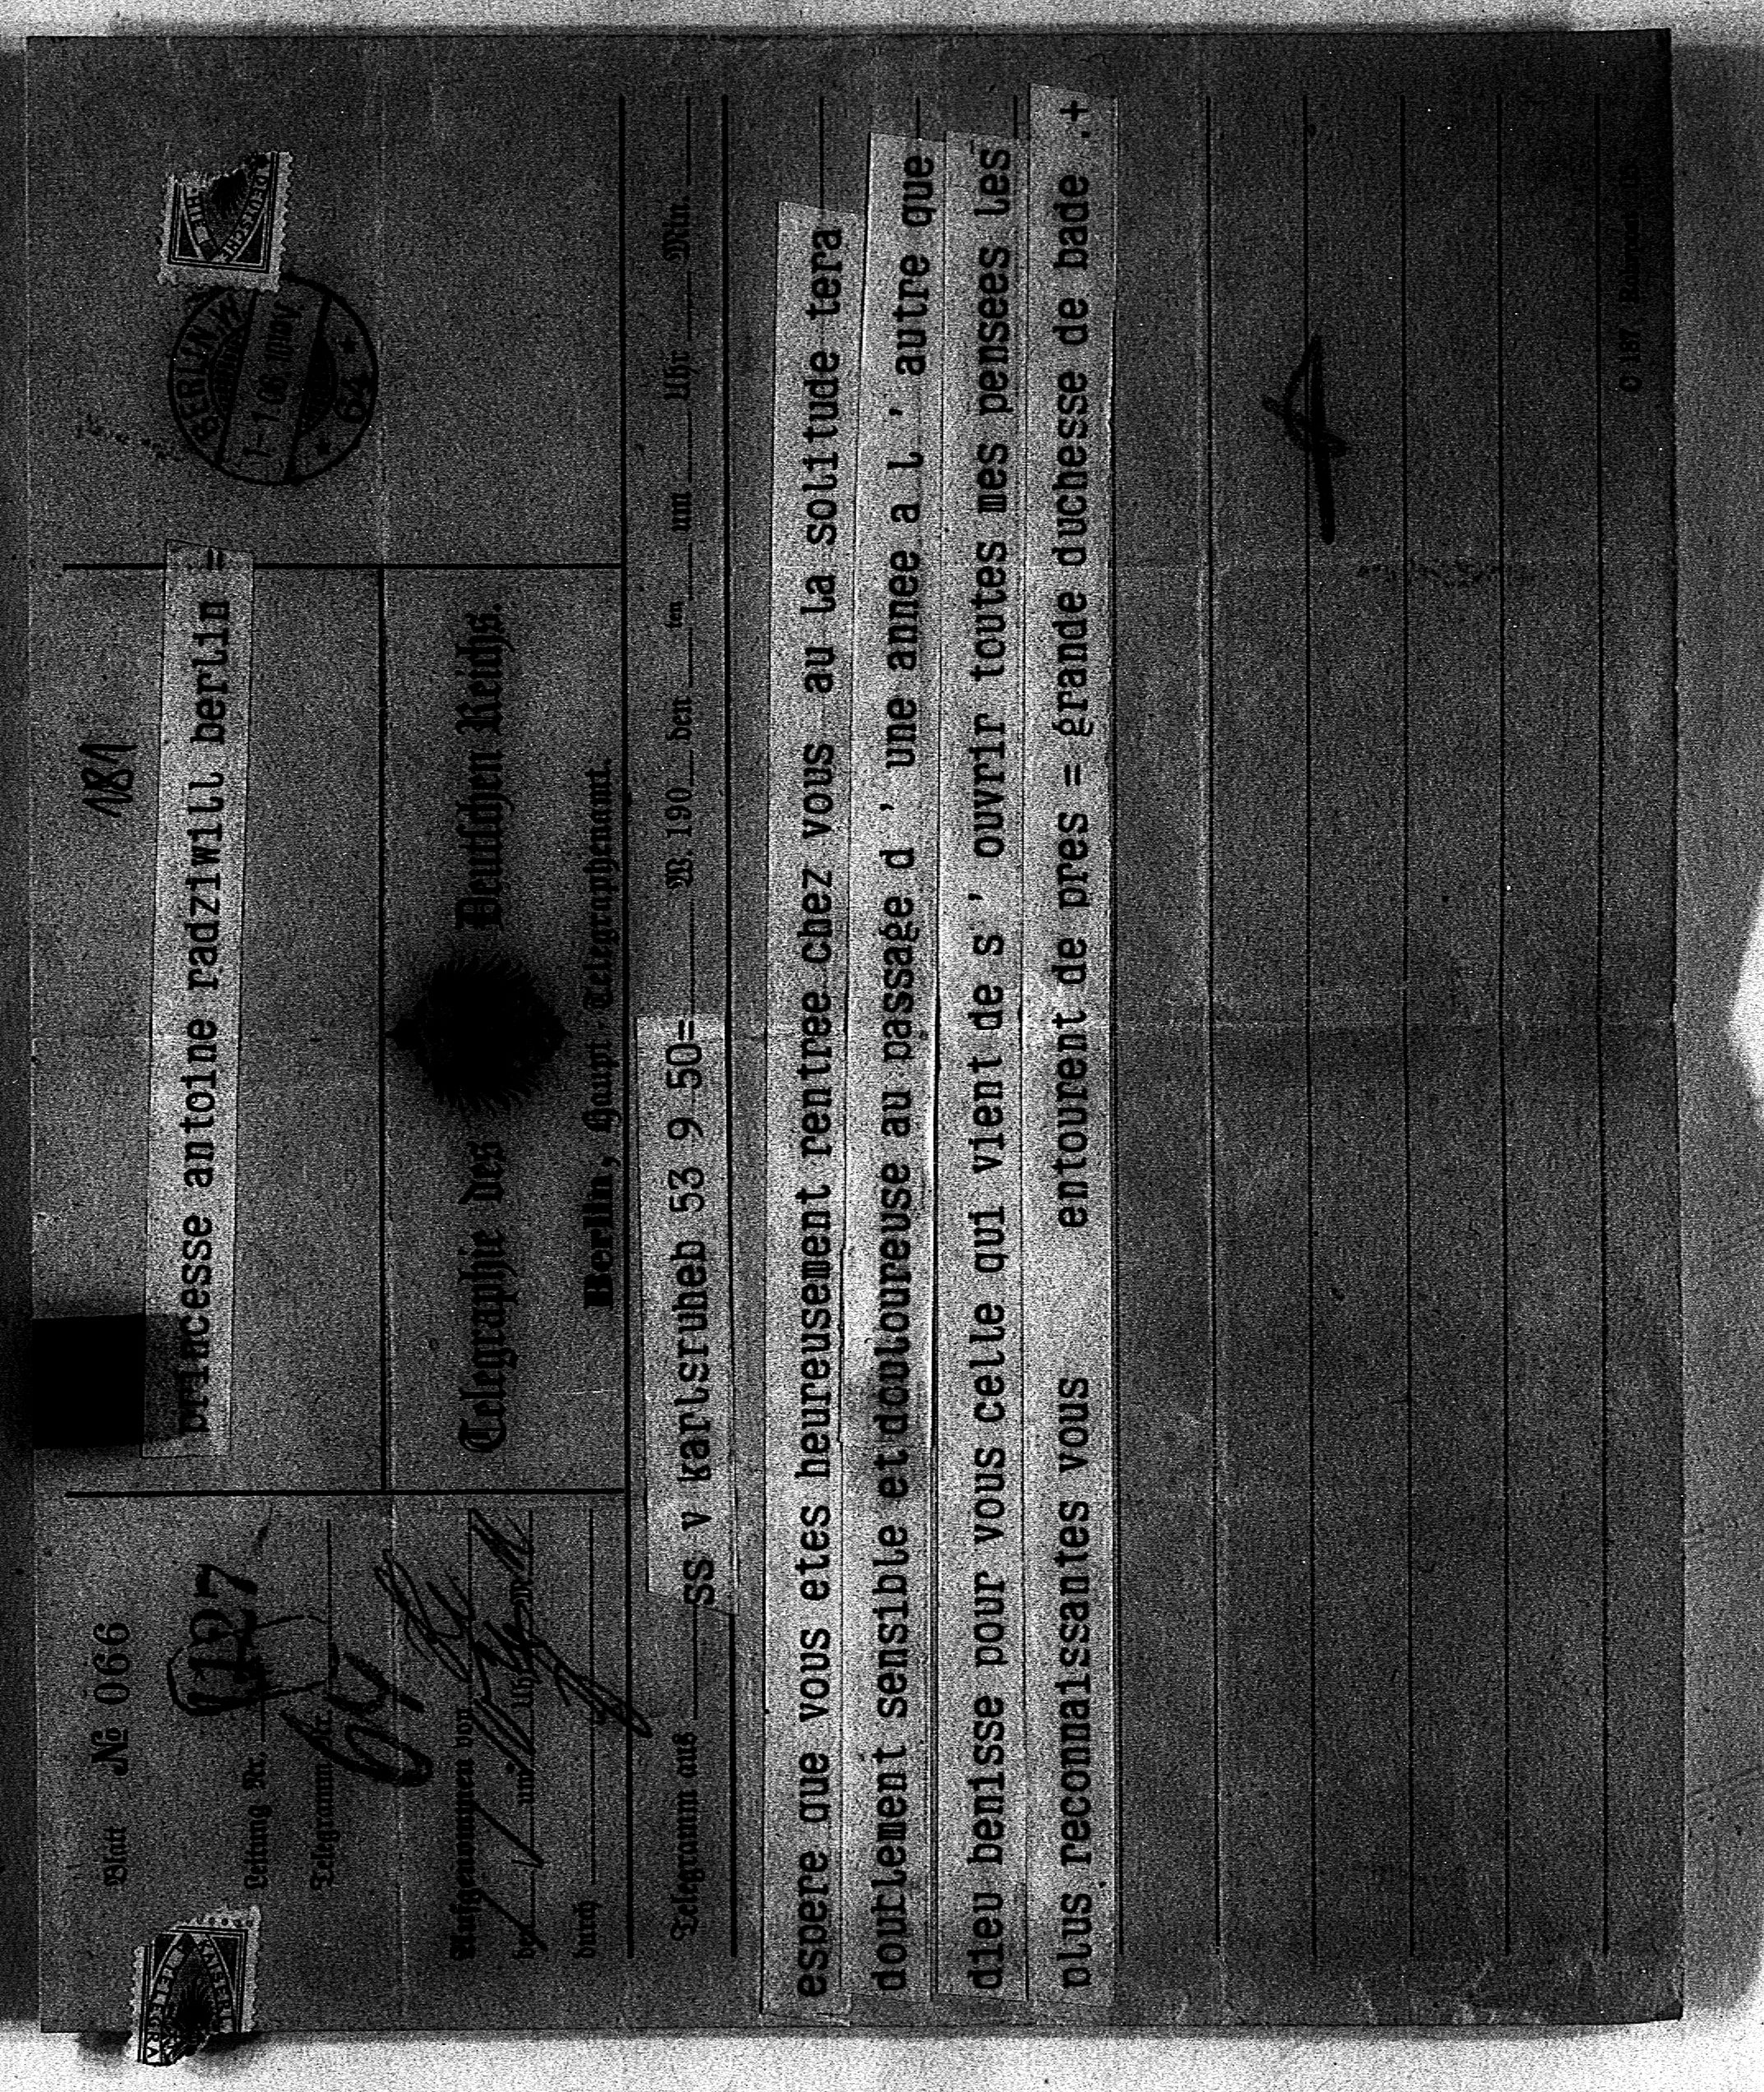 Blatt № 066
181
Leitung Nr.
Telegramm Nr.
princesse antoine radziwill berlin =
BERLIN.W.
64
Aufgenommen von
um Uhr M
durch
Telegraphie des Deutschen Reichs.
Berlin, Haupt-Telegraphenamt.
Telegramm aus ss v karlsruheb 53 9 50= W. 190 den ten um Uhr Min.
espere que vous etes heureusement rentree chez vous au la solitude tera
dourlement sensible et douloureuse au passage d ' une annee a l ' autre que
dieu benisse pour vous celle qui vient de s ' ouvrir toutes mes pensees les
plus reconnaissantes vous entourent de pres = grande duchesse de bade .+
C 187